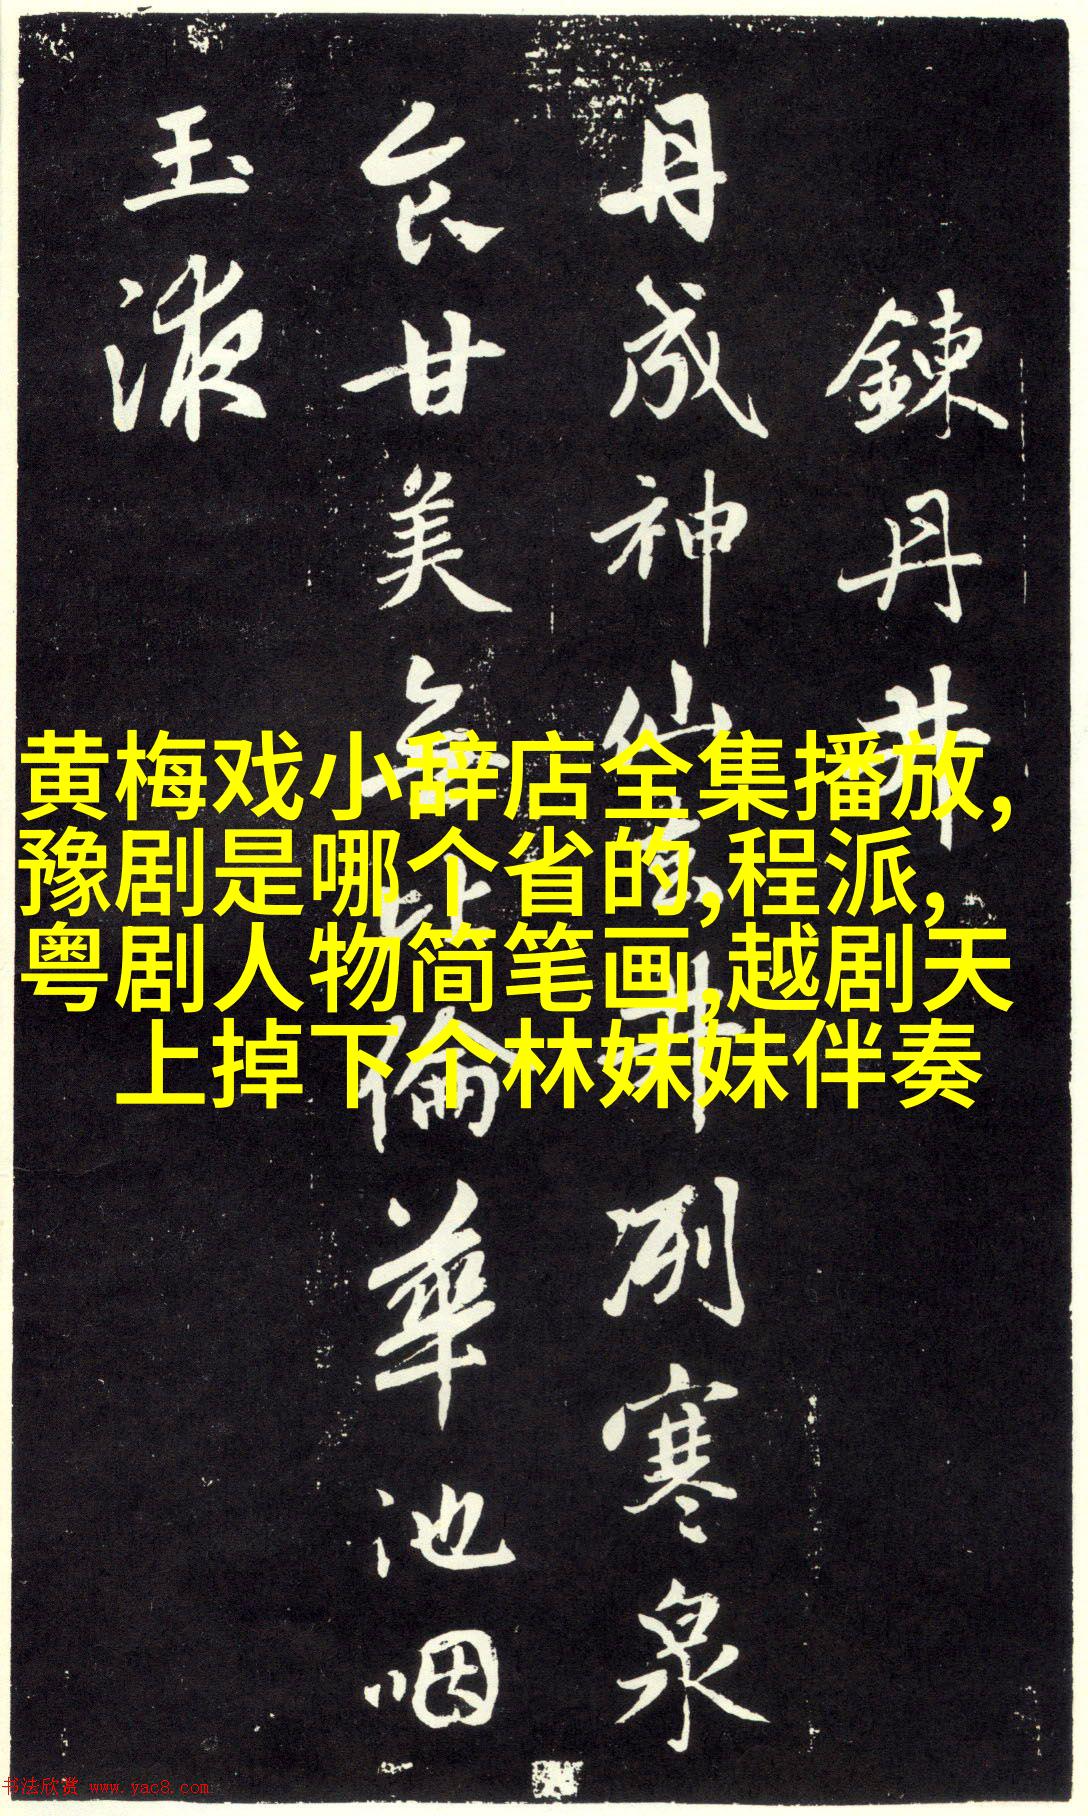 鍊丹井
丹成神仙去井冽寒泉
食甘美無比倫華池咽
玉液
黄梅戏小辞店全集播放,
豫剧是哪个省的,程派,
粤剧人物简笔画,越剧天
上掉下个林妹妹伴奏
书法欣赏 www.yac8.com